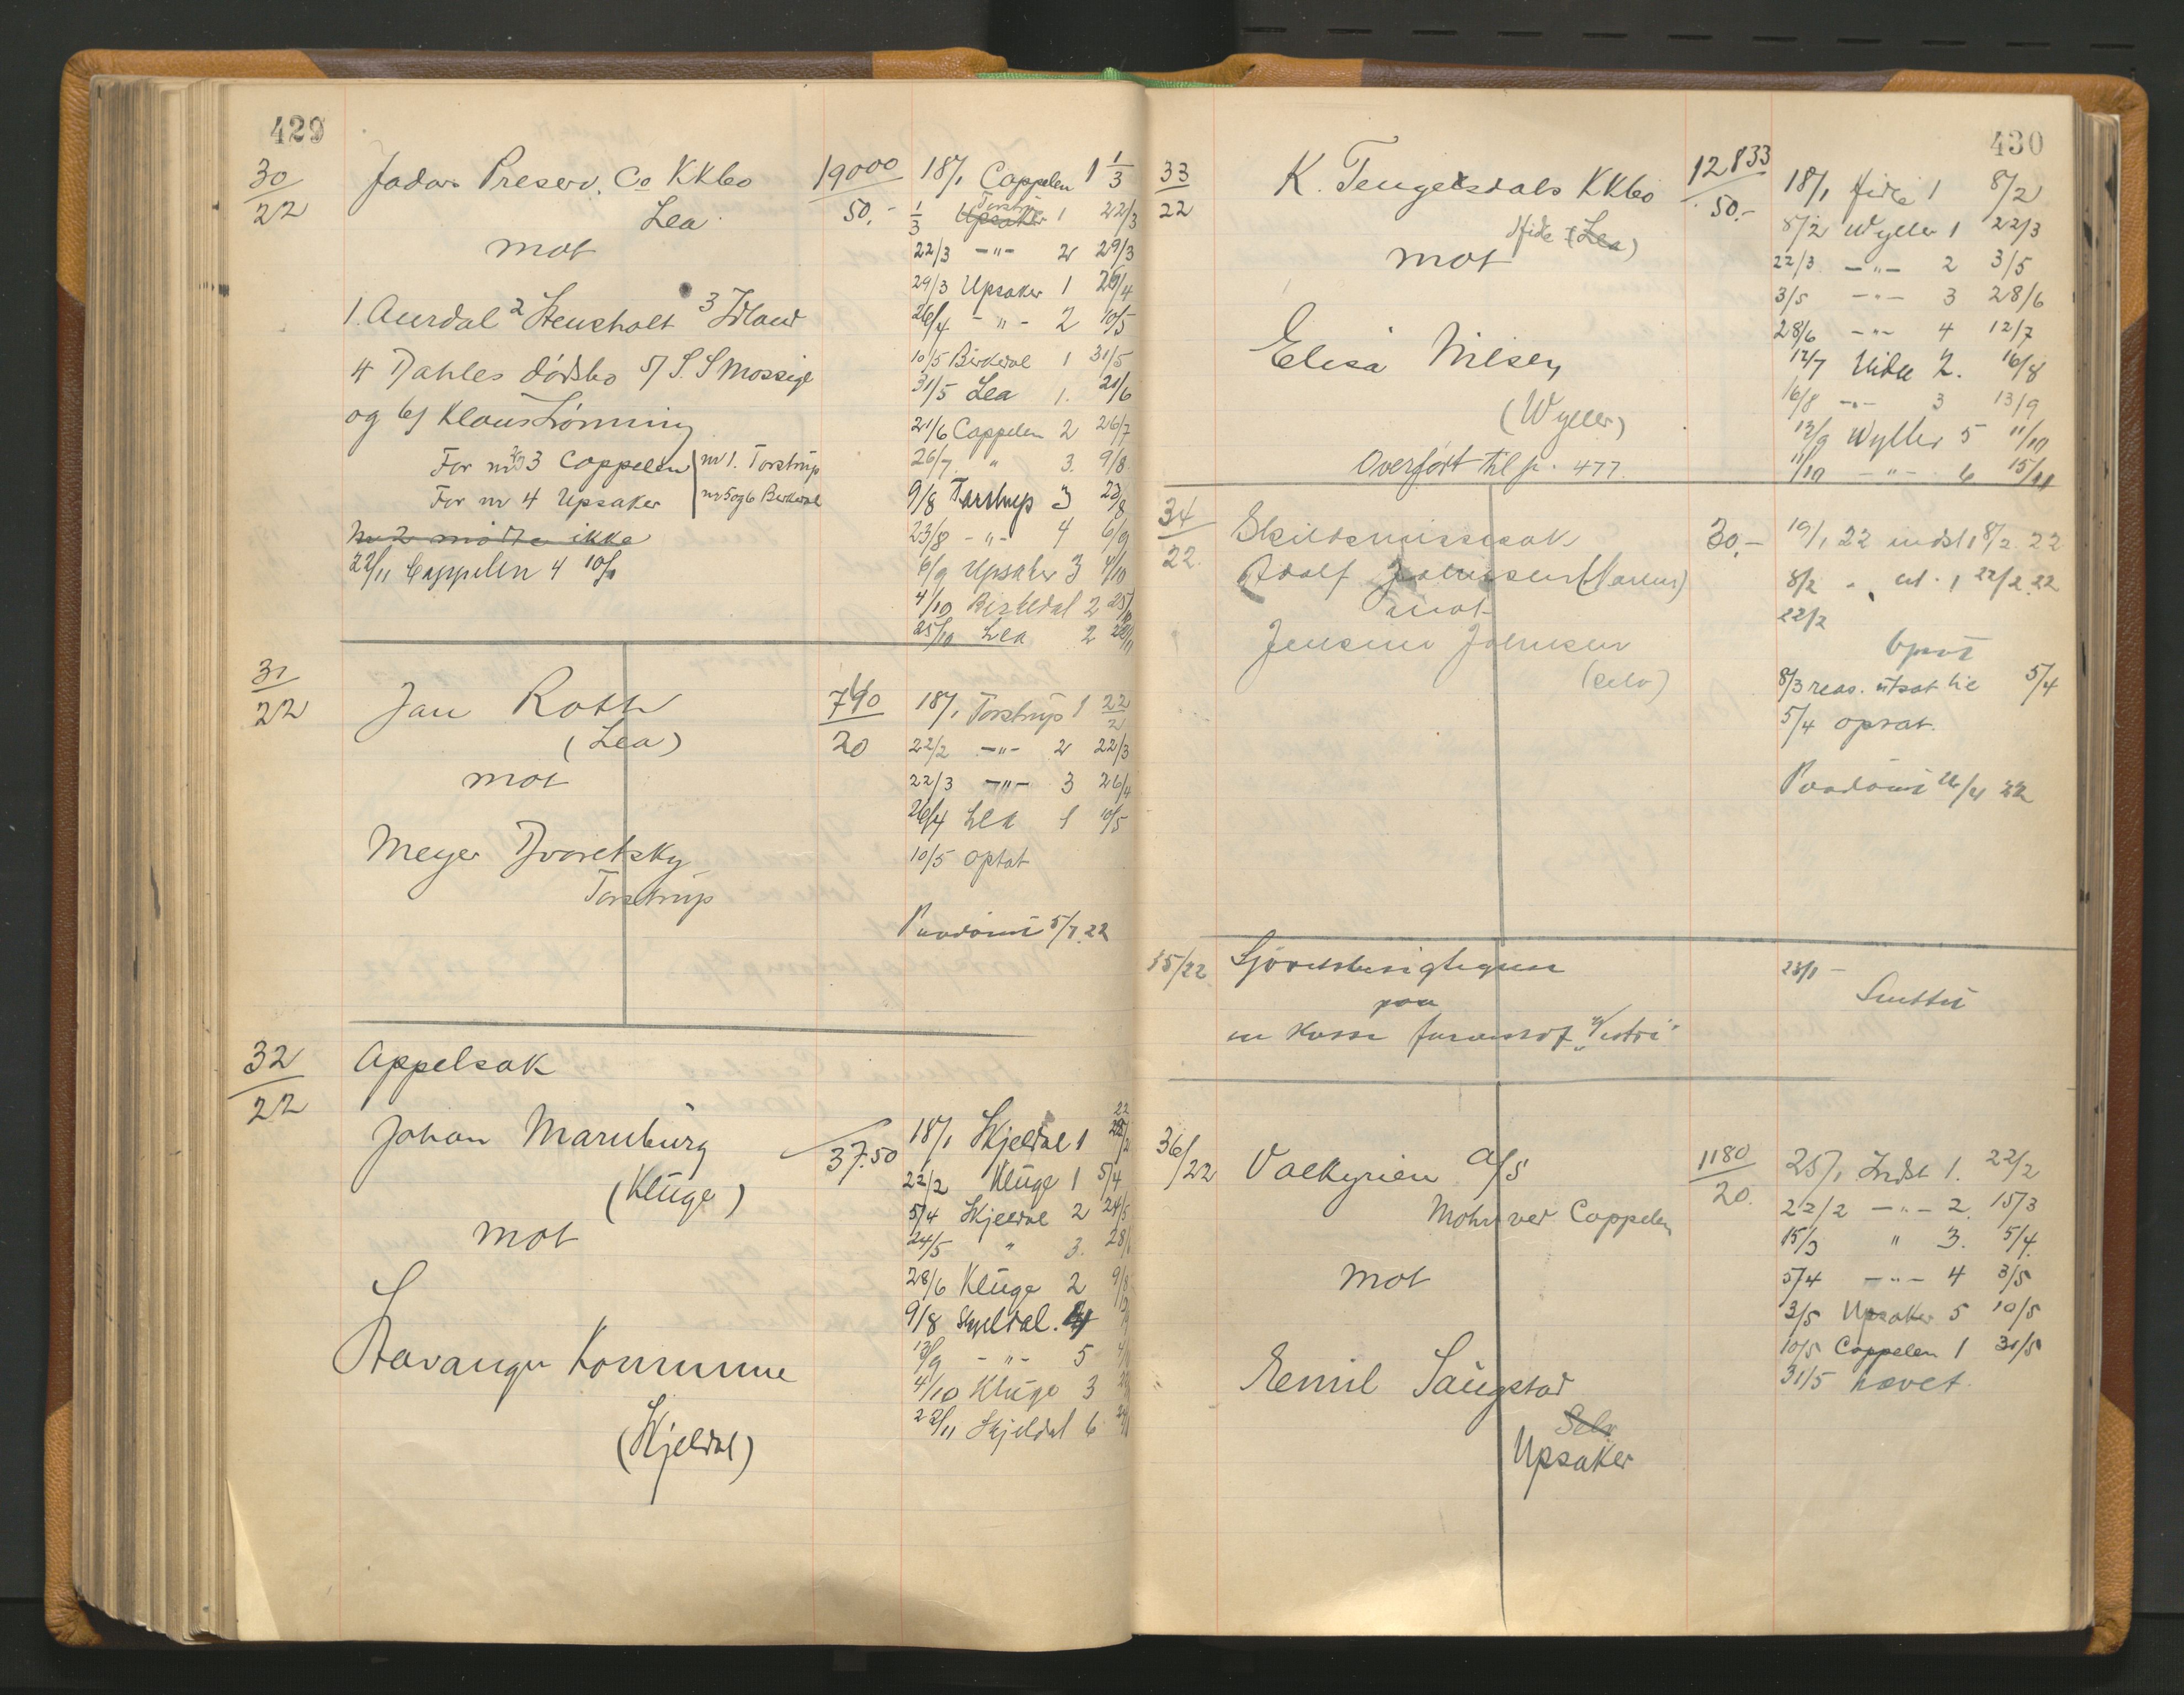 429
30/22 Jadar Preserv. Co KKbo 19000 18/1 Cappelen 1 1/3
Lea 50,- 1/3 Torstrup Upsaker 1 22/3
mot 22/3 -"- 2 29/3
29/3 Upsaker 1 26/4
1. Aurdal 2 Stensholt 3 Idland 26/4 -"- 2 10/5
4 Dahles dødsbo 5/ S. S Mossige 10/5 Birkedal 1 31/5
31/5 Lea 1. 21/6
og 6/ Klaus Lønning 21/6 Cappelen 2 26/7
For nr 3 Cappelen nr 1. Torstrup 26/7 " 3. 9/8
For nr 4 Upsaker nr 5 og 6 Birkedal 9/8 Torstrup 3 23/8
Nr 2 mødte ikke 23/8 -"- 4 6/9
22/11 Cappelen 4 6/9 Upsaker 3 4/10
4/10 Birkedal 2 25/10
25/10 Lea 2 22/11
31/22 Jan Roth 790 18/1 Torstrup 1 22/2
(Lea) 20 22/2 -"- 2 22/3
mot 22/3 -"- 3 26/4
26/4 Lea 1 10/5
Meyer Dvoretsky 10/5 optat
Torstrup
Paadømt 5/7 22
32/22 Appelsak
Johan Marnburg 37.50 18/1 Skjeldal 1 22/2
(Kluge) 22/2 Kluge 1 5/4
mot 5/4 Skjeldal 2 24/5
24/5 " 3. 28/6
28/6 Kluge 2 9/8
9/8 Skjeldal. 4
Stavanger Kommune 13/9 -"- 5
4/10 Kluge 3
(Skjeldal) 22/11 Skjeldal 6
430
33/22 K. Tengesdals KKbo 12833 18/1 Hide 1 8/2
Hide (Lea) 50.- 8/2 Wyller 1 22/3
mot 22/3 -"- 2 3/5
3/5 -"- 3 28/6
Elisa Nilsen 28/6 -"- 4 12/7
12/7 Hide 2. 16/8
(Wyller) 16/8 -"- 3 13/9
13/9 Wyller 5 11/10
Overført til p. 477. 11/10 -"- 6 15/11
34/22. Skilsmissesak 30,- 19/1 22 indst 1 8/2 22
Adolf Johnsen 8/2 1 22/2 22
mot 22/2
Jensine Johnsen
(selv) 8/3 reas. utsat til 5/4
5/4 opsat.
Paadømt 22
35/22 Sjørettsbesigtigelse 25/1 -
paa Sluttet
en kasse
36/22 Valkyrien A/S 1180 25/1 Indst 1. 22/2
Mohr ved Cappelen 20. 22/2 -"- 2. 15/3
15/3 " 3. 5/4.
mot 5/4 -"- 4 3/5
3/5 Upsaker 5 10/5
10/5 Cappelen 1 31/5
Emil Saugstad 31/5 hævet.
Selv
Upsaker